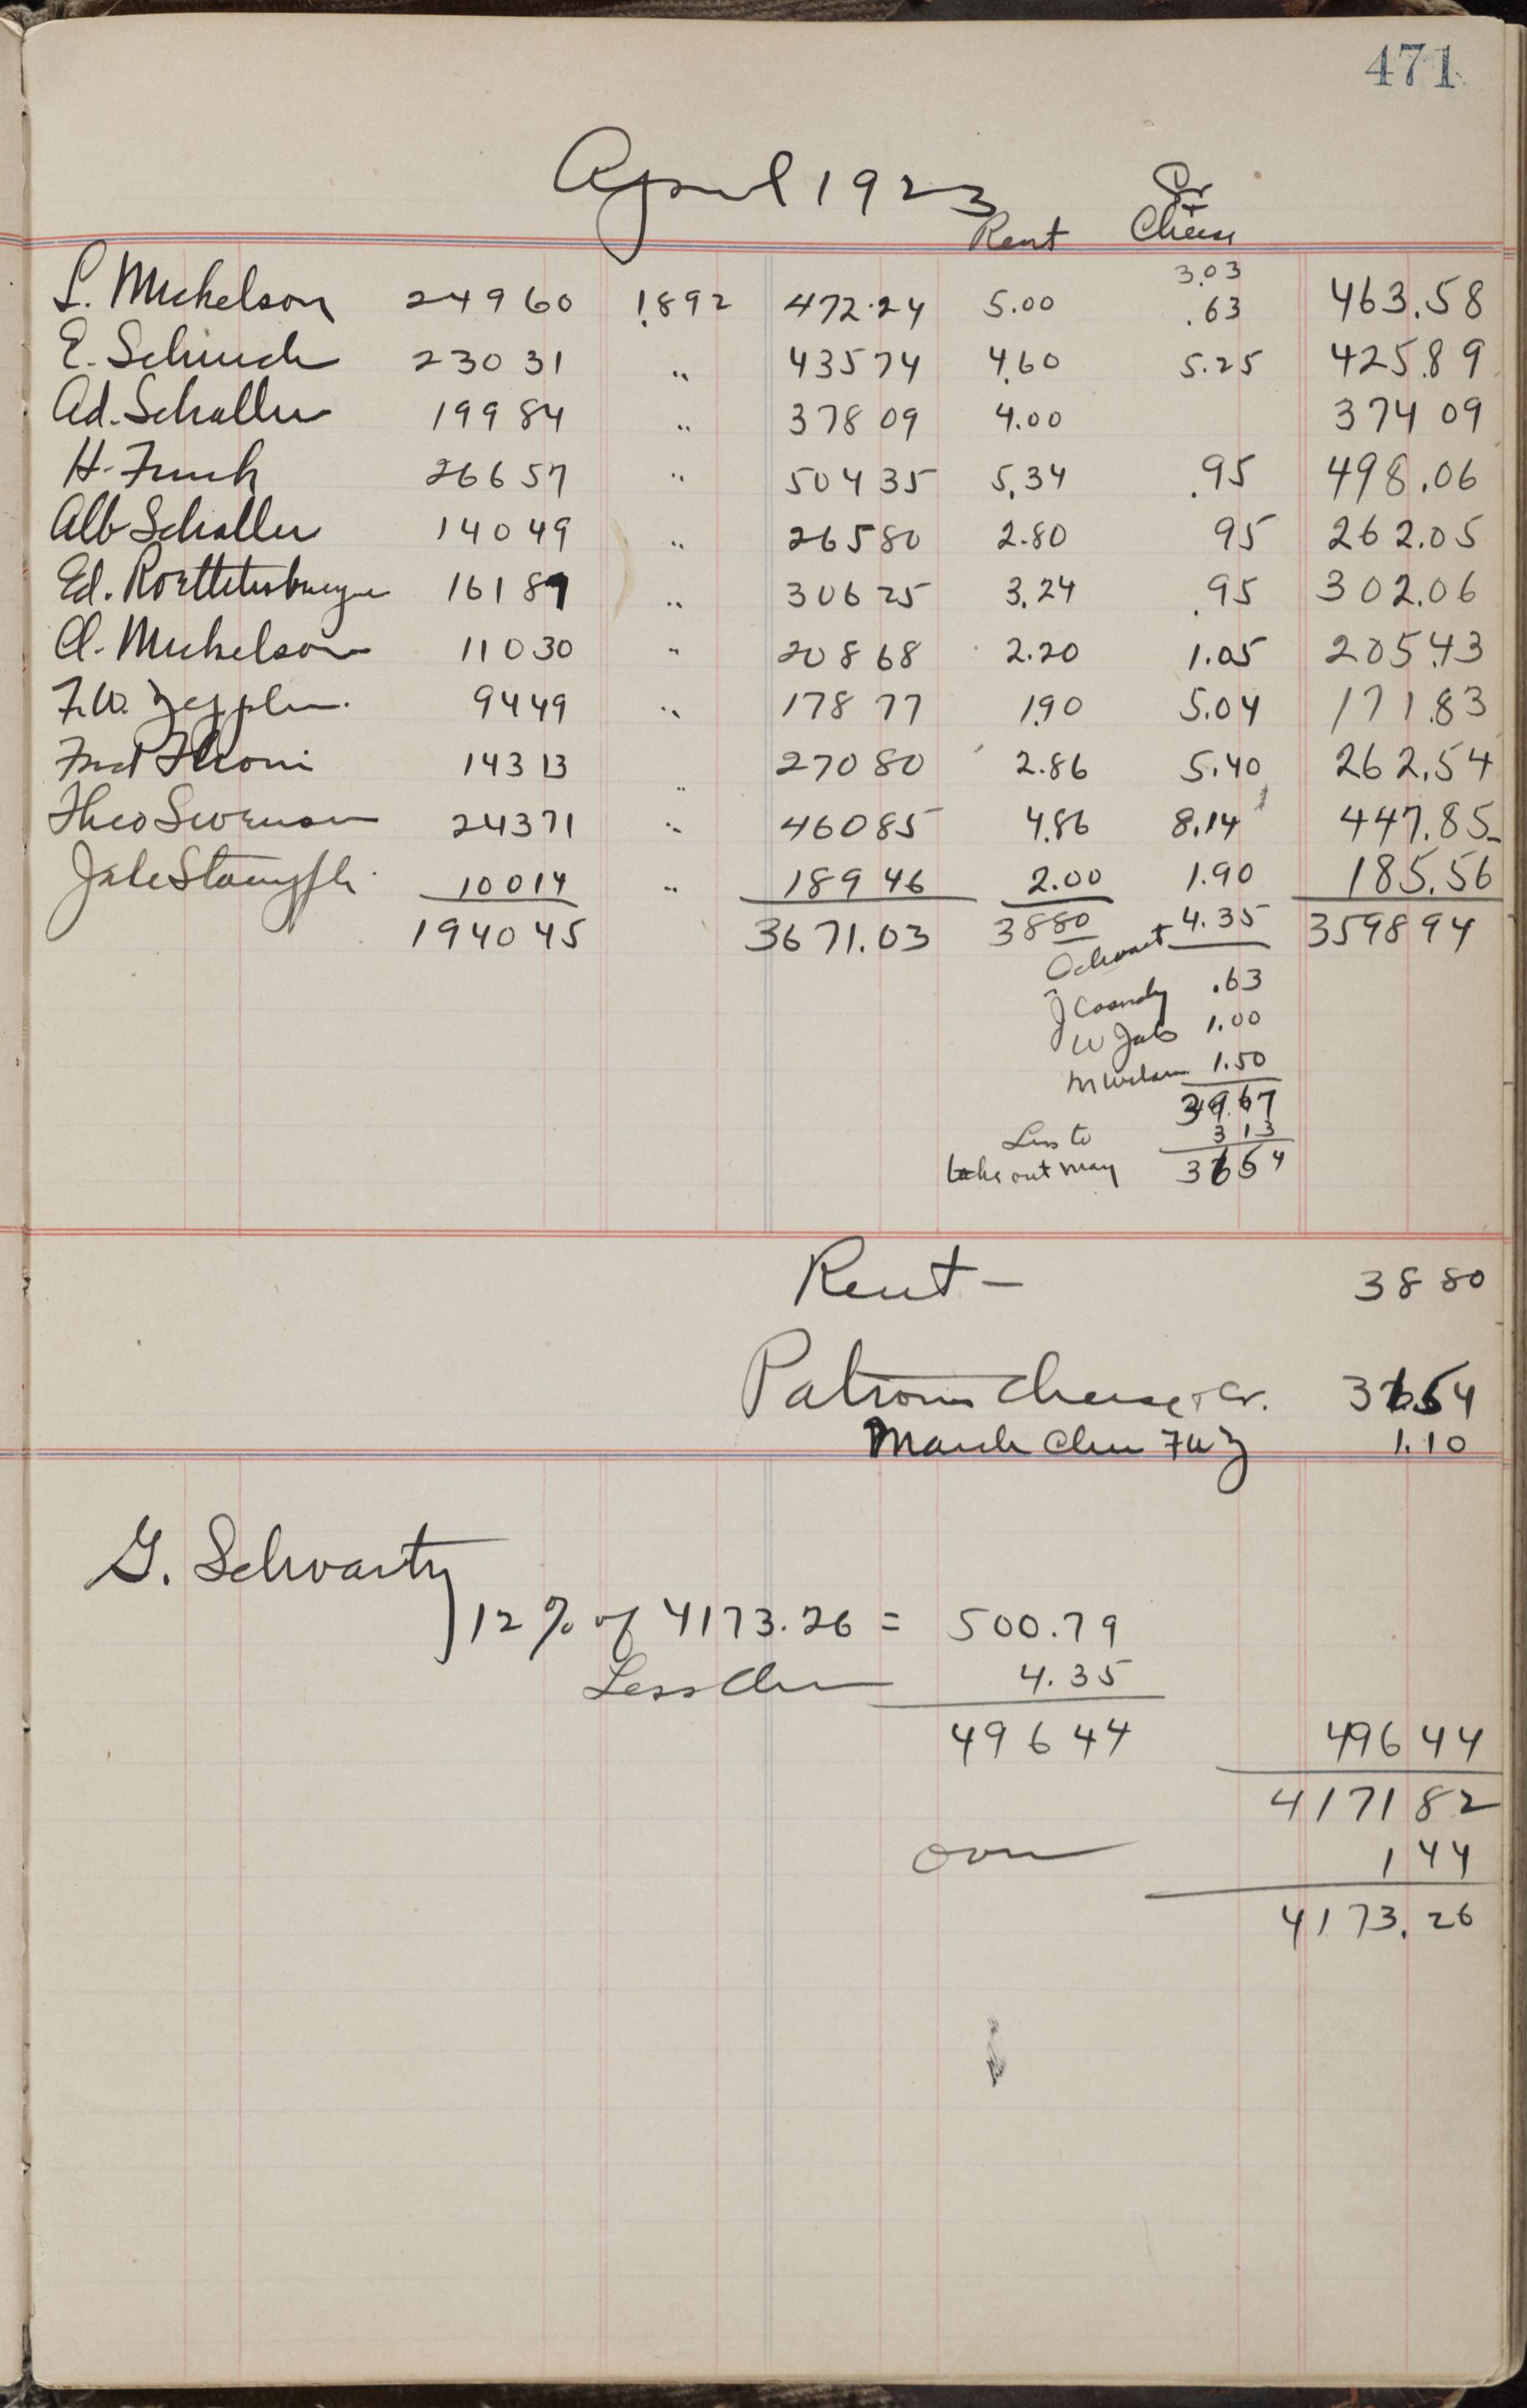 471
April 1923
Cr
Rent Cheese
3.03
L. Mickelson 24960 1.892 472.24 5.00 .63 463.58
E. Schuch 23031 " 43574 4.60 5.25 425.89
Ad. Schaller 19984 " 37809 4.00 374 09
H. Funk 26657 " 50435 5.34 .95 498.06
Alb Schaller 14049 " 26580 2.80 95 262.05
Ed. 16189 " 30625 3.24 .95 302.06
Cl. Mickelson 11030 " 20868 2.20 1.05 205.43
F.W. Zepplin. 9449 " 17877 1.90 5.04 171.83
Fred Theoni 14313 " 27080 2.86 5.40 262.54
Theo Swenson 24371 " 46085 4.86 8.14 447.85
Jake Staempfli 10014 " 18946 2.00 1.90 185.56
194045 3671.03 3880 4.35 359894
Schwart
.63
W Jab 1.00
1.50
39.67
Less to 3 13
take out May 3654
Rent – 38 80
Patrons Cheese + Cr. 36.54
March Chee FWZ 1.10
G. Schwartz
12 % of 4173.26 = 500.79
Less Chee 4.35
49644 49644
417182
over 144
4173.26